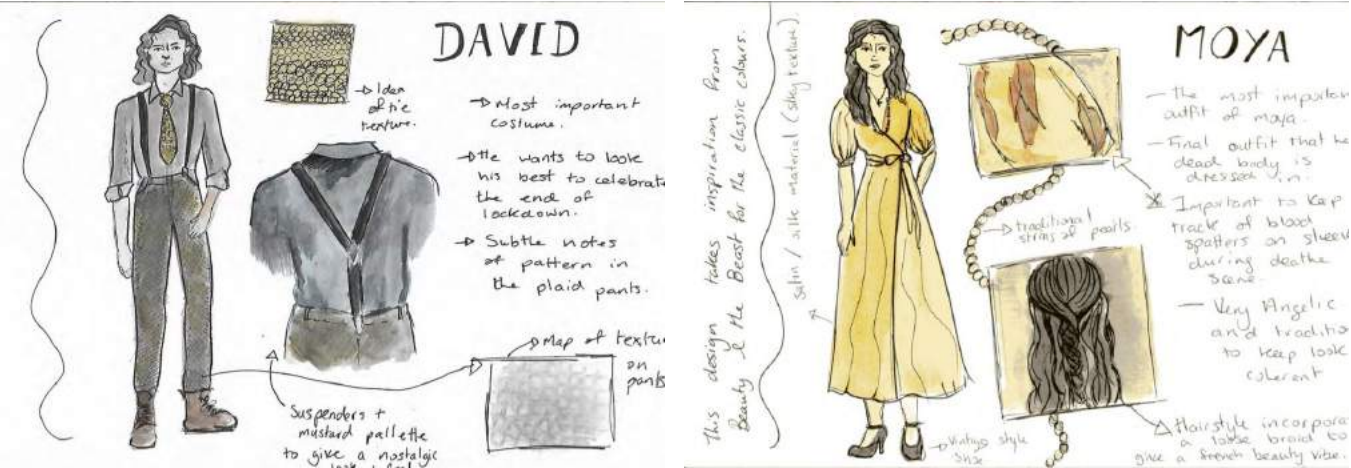 DAVID
Idea
of tie
texture.
Most important
costume.
He wants to look
his best to celebrate
the end of
lockdown.
Subtle notes
of pattern in
the plaid pants.
Map of textu
on
pants
Suspenders +
mustard pallette
to give a nostalgic
This design takes inspiration from
Beauty & the Beast for the classic colours.
Satin / silk material (silky texture).
MOYA
The most importan
outfit of moya.
Final outfit that he
dead body is
dressed in.
Important to keep
track of blood
spatters on sleev
during deathe
scene.
traditional
string of pearls.
Very Angelic
and traditio
to keep look
coherent
Hairstyle incorpora
a loose braid to
give a french beauty vibe.
Vintage style
shoe